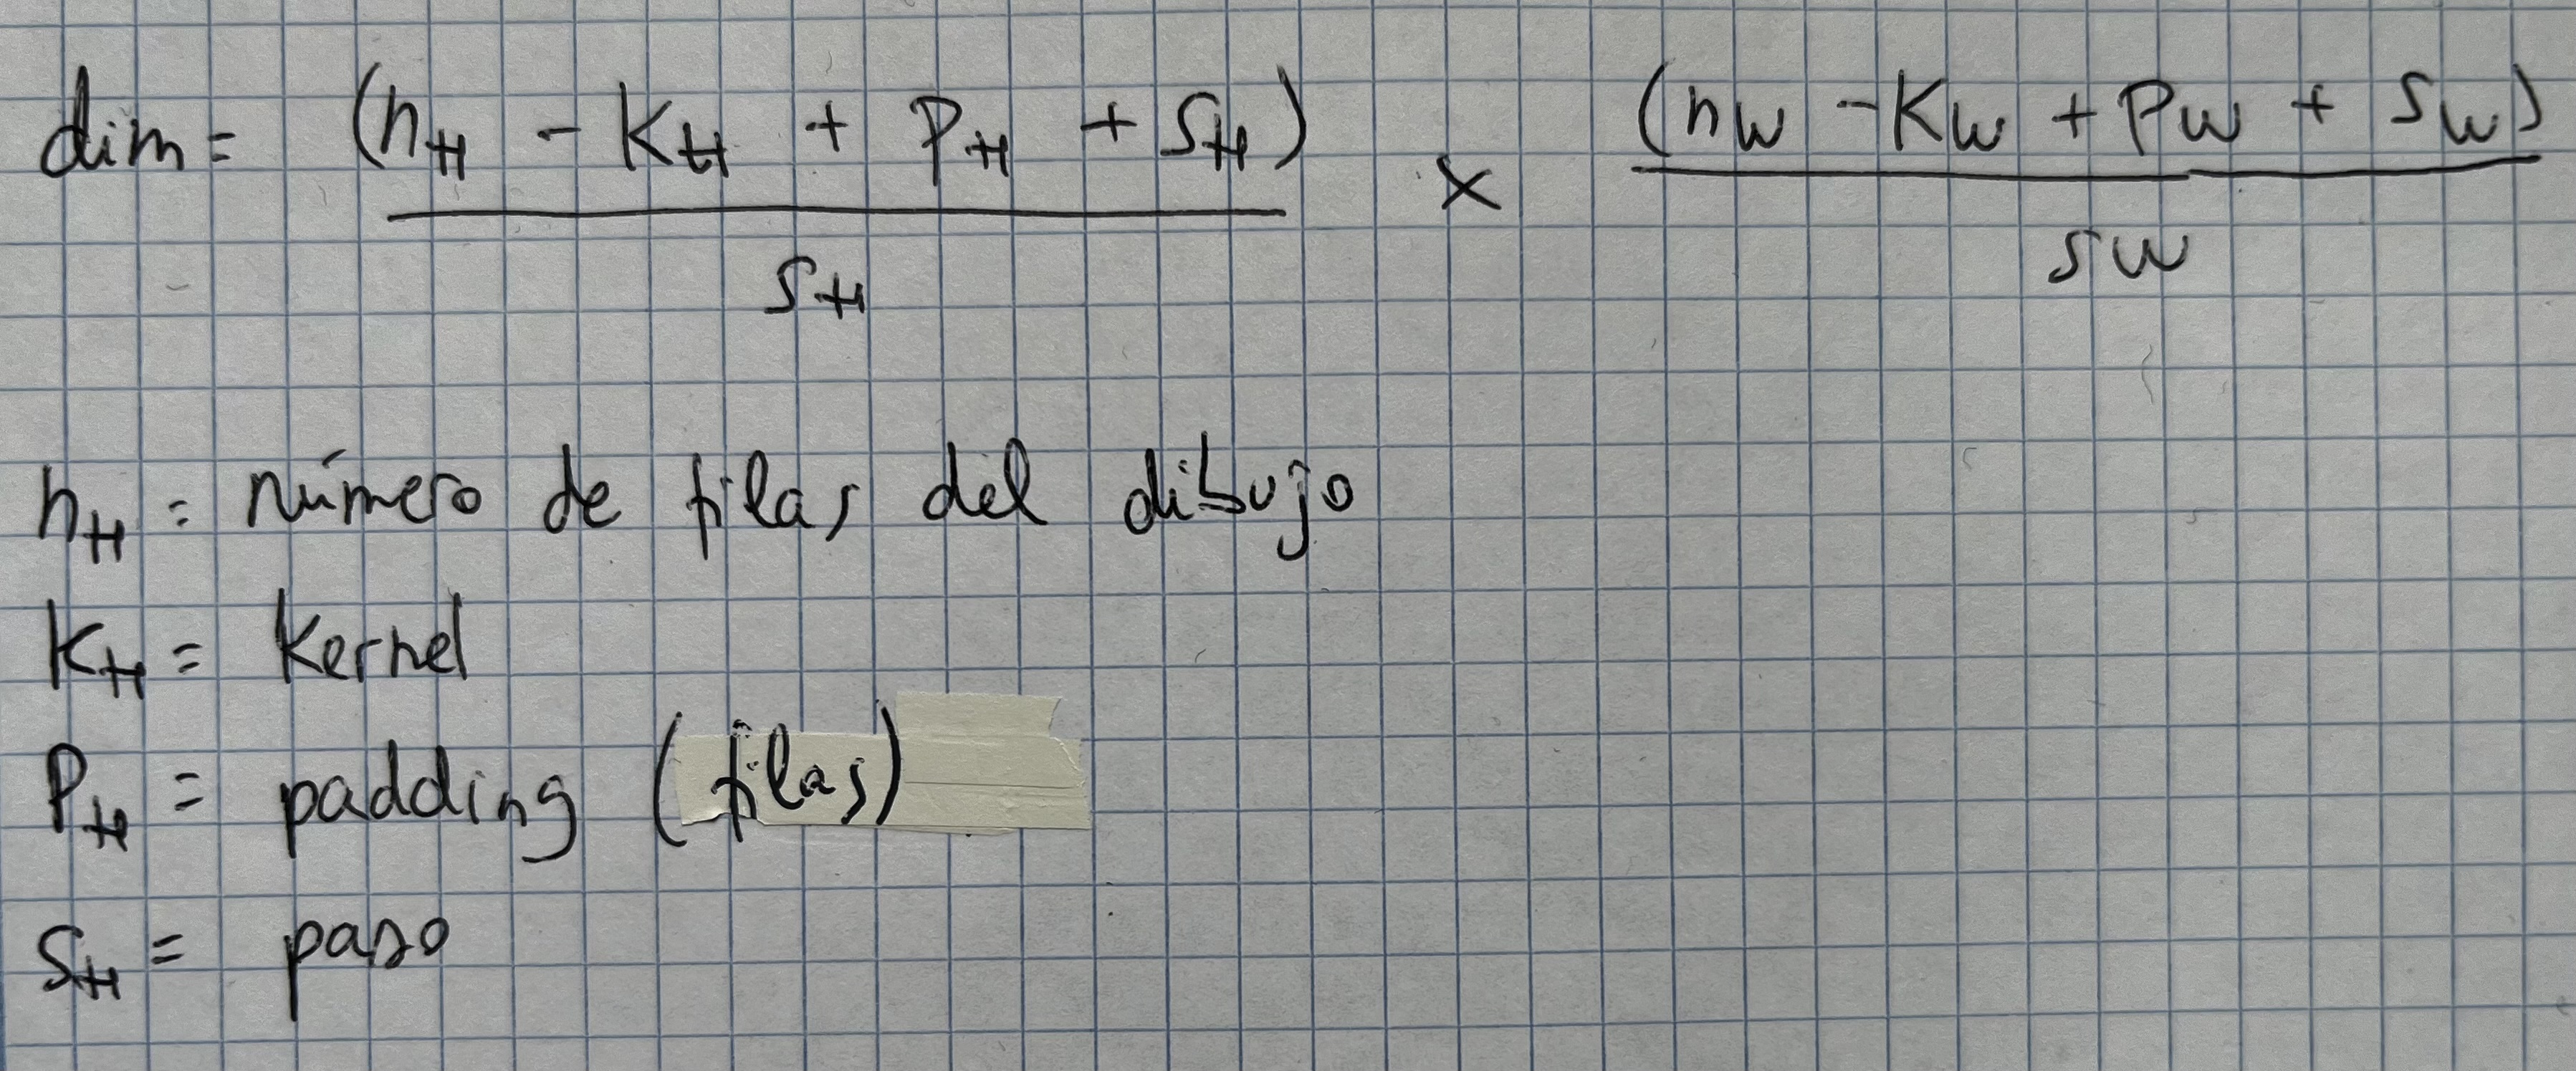 dim = (n_H - K_H + P_H + S_H) / S_H x (n_W - K_W + P_W + S_W) / S_W
n_H = número de filas del dibujo
K_H = Kernel
P_H = padding (filas)
S_H = paso